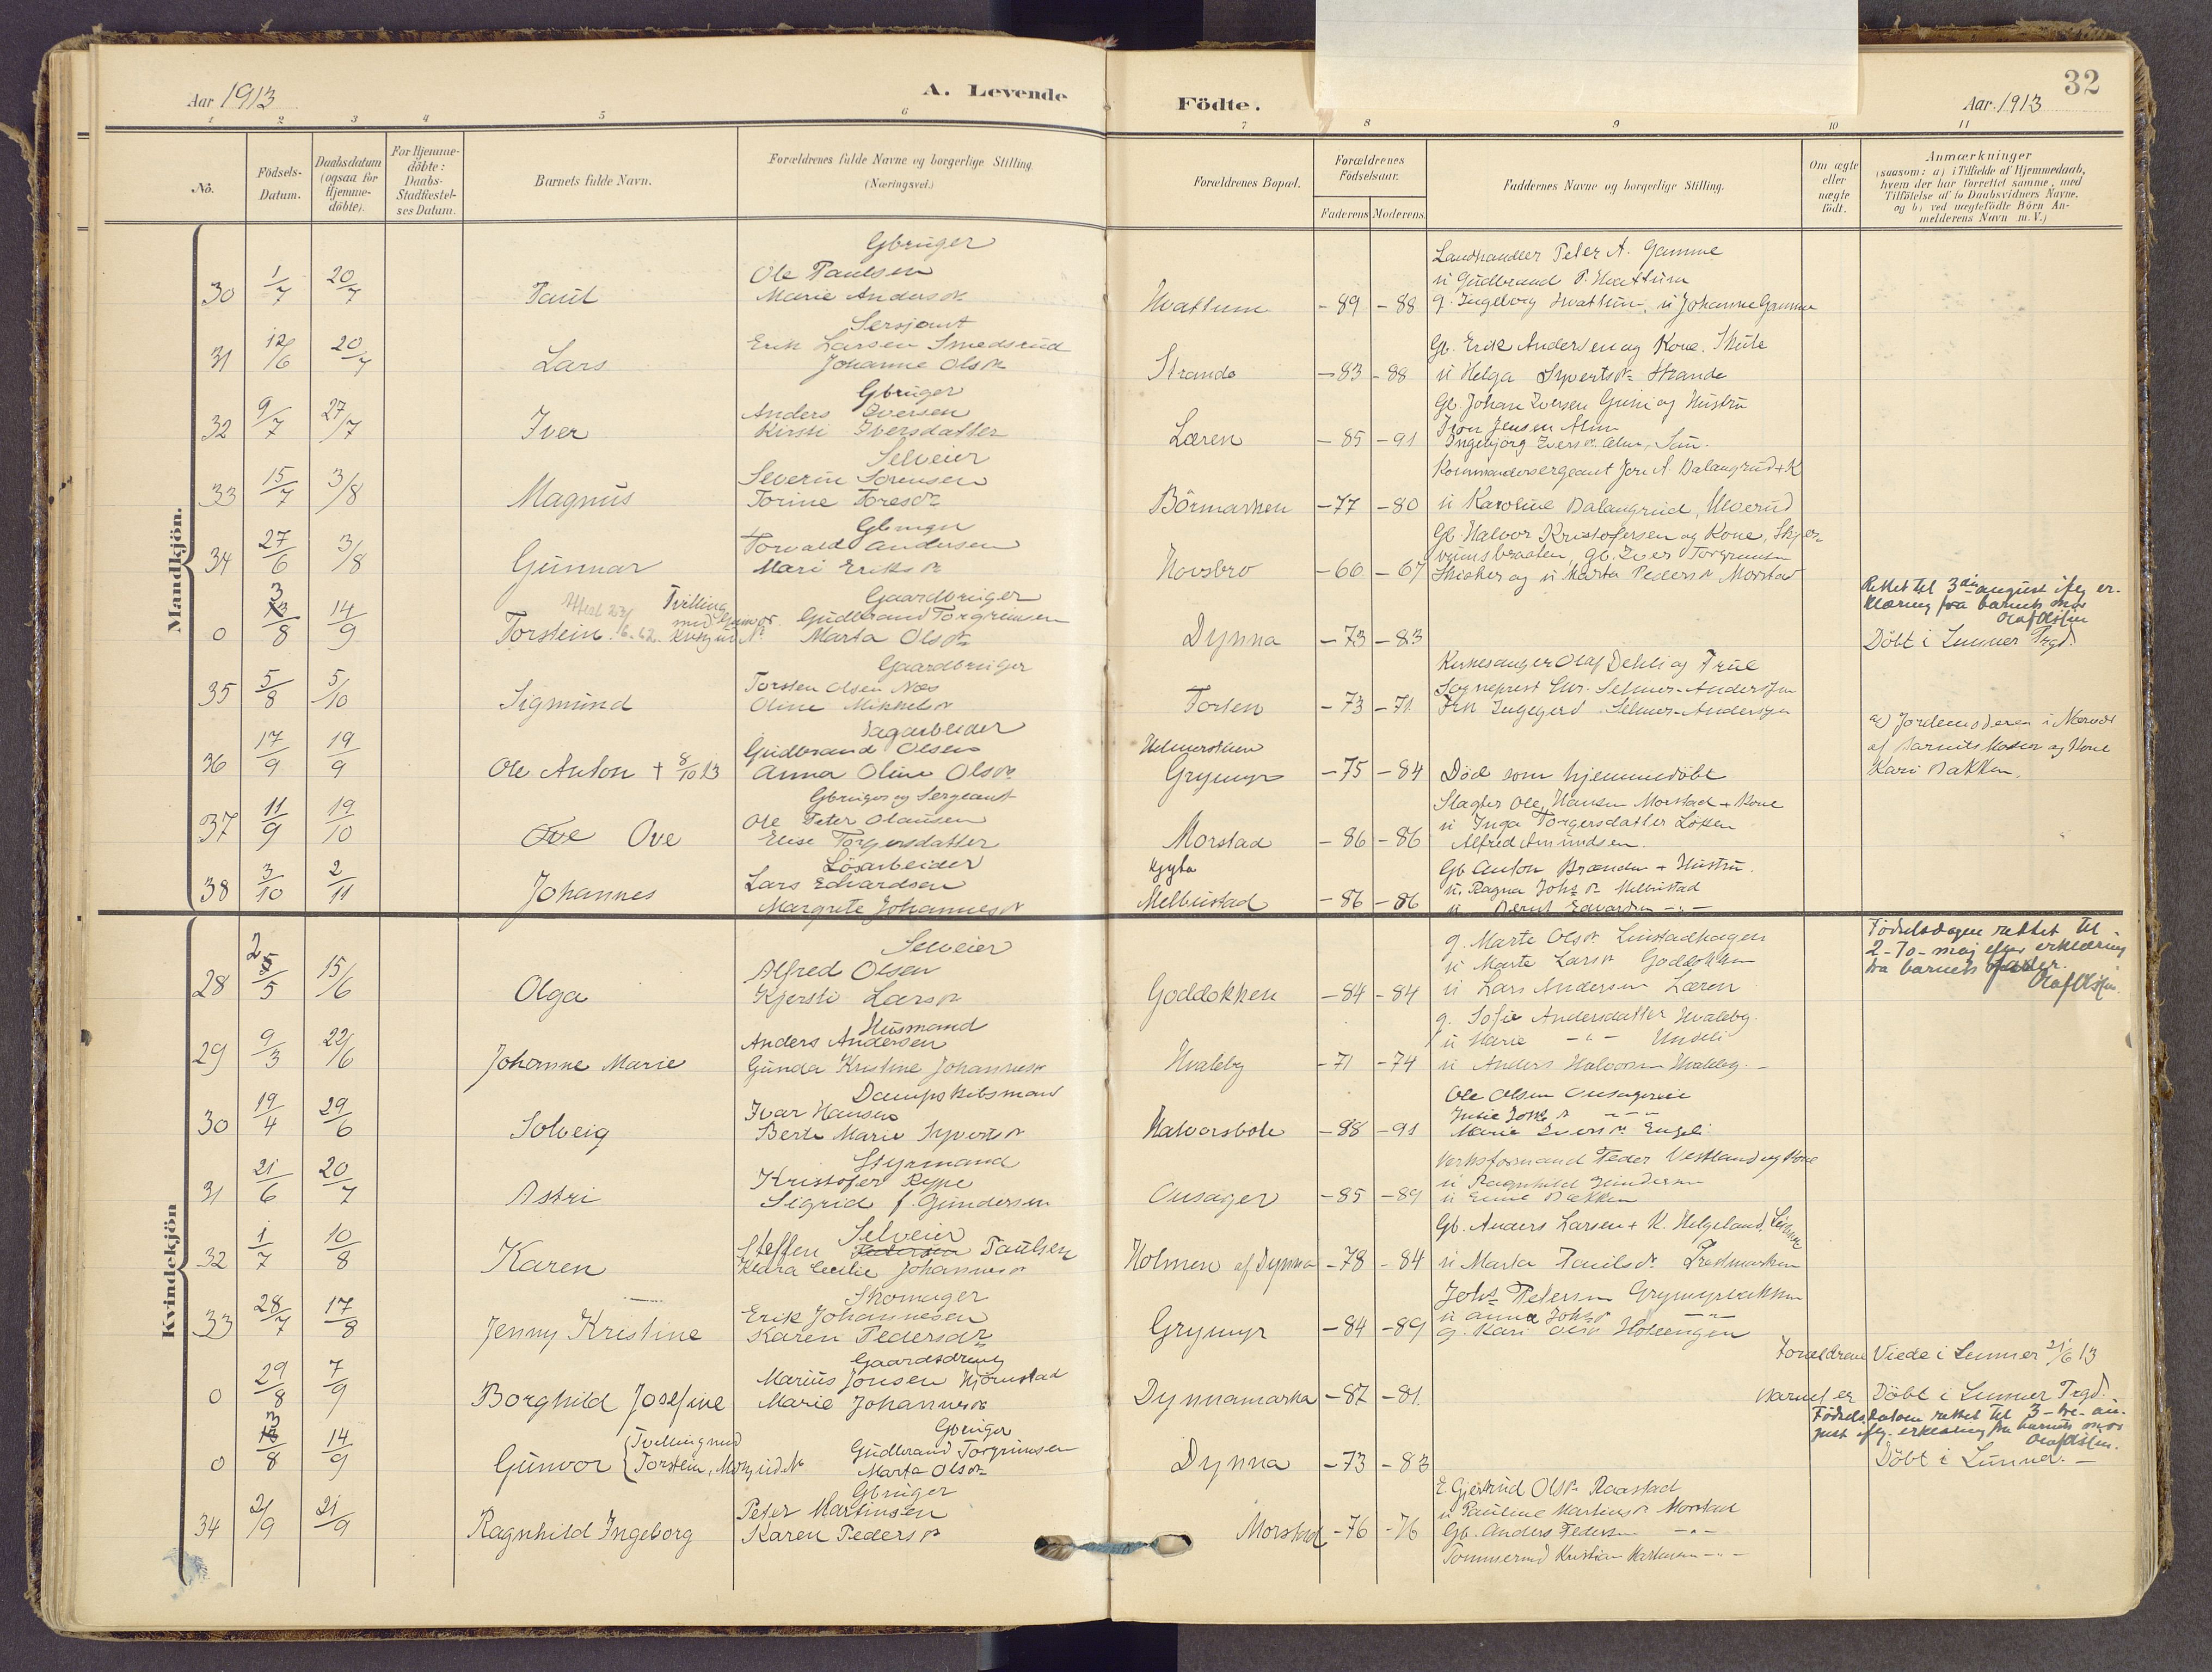 32
Aar 1913
A. Levende
Födte.
Aar 1913
1 2 3 4 5 6 7 8 9 10 11
No.
Födsels-Datum.
Daabsdatum (ogsaa for Hjemme-döbte).
For Hjemme-döbte: Daabs-Stadfæstel-ses Datum.
Barnets fulde Navn.
Forældrenes fulde Navne og borgerlige Stilling. (Næringsvei.)
Forældrenes Bopæl.
Forældrenes Födselsaar.
Faderens Moderens.
Faddernes Navne og borgerlige Stilling.
Om ægte eller uægte födt.
Anmærkninger
(saasom: a) i Tilfælde af Hjemmedaab, hvem der har forrettet samme, med Tilföielse af to Daabsvidners Navne, og b) ved uægtefödte Börn An-melderens Navn m. V.)
Mandkjön.
Gbruger
30 1/7 20/7 Paul Ole Paulsen
Marie Andersdr
Hvattum -89 -88
Landhandler Peter A. Gamme
u Gudbrand P. Hvattum
g. Ingeborg Hvattum, u Johanne Gamme
Sersjant
31 12/6 20/7 Lars Erik Larsen Smedsrud
Johanne Olsdr
Strande -83 -88
Gb. Erik Andersen og Kone
u Helga Syvertsdr Strande
Gbruger
32 9/7 27/7 Iver Anders Iversen
Kirsti Iversdatter
Læren -85 -91
Gb. Johan Iversen og Hustru
Jensen Alm
Ingebjörg Iversdr Alm
Selveier
33 15/7 3/8 Magnus Severin Sörensen
Torine Toresdr
Börmarken -77 -80
Kommandersergeant Jörn A. Dalangrud + K
u Karoline Dalangrud, Ulverud
Gbruger
34 27/6 3/8 Gunnar Torvald Andersen
Mari Eriksdr
Hovsbro -66 -67
Gb. Halvor Kristofersen og Kone, Skjer-
vumsbraaten, gb. Iver Torgrimsen
og u Marta Pedersdr Morstad
Gaardbruger
0 3/8 14/9 Torstein Tvilling med Gunvor Gudbrand Torgrimsen
Marta Olsdr
Dynna -73 -83
Rettet til 3die august iflg er-
klæring fra barnets mor
Olaf Olssen
Döbt i Lunner Prgd.
Gaardbruger
35 5/8 5/10 Sigmund Torsten Olsen Næs
Oline Mikkelsdr
Torsen -73 -71
Kirkesanger Olaf Dehli og Frue
Sogneprest Chr. Selmer-Anderssen
Frk Ingegerd Selmer-Anderssen
Dagarbeider
36 17/9 19/9 Ole Anton + 8/10 13 Gudbrand Olsen
Anna Oline Olsdr
Grymyr -75 -84 Död som hjemmedöbt
a) Jordemoderen i Nærvær
af Barnets Moder og Kone
Kari Bakken.
Gbruger og Sergeant
37 11/9 19/10 Ove Ole Peter Olausen
Elise Torgersdatter
Morstad -86 -86
Slagter Ole Hansen Morstad + Kone
u Inga Torgersdatter Löken
Alfred Amundsen.
Lösarbeider
38 3/10 2/11 Johannes Lars Edvardsen
Margrete Johannesdr
Melbustad -86 -86
Gb Anton Brænden + Hustru.
u. Ragna Johsdr Melbustad
u Bernt Edvardsen -"-
Kvindekjön
Selveier
28 2/5 15/6 Olga Alfred Olsen
Kjersti Larsdr
Goddokken -84 -84
g. Marte Olsdr Linstadhagen
u Marte Larsdr Goddokken
u Lars Andersen Læren
Födselsdagen rettet til
2-To- maj efter erklæring
fra barnets fader.
Olaf Olssen.
Husmand
29 9/3 22/6 Johanne Marie Anders Andersen
Gunda Kristine Johannesdr
Hvaleby -71 -74
g. Sofie Andersdatter Hvaleby.
u Marie -"- Undeli
u Anders Halvorsen Hvaleby.
Dampskibsmand
30 19/4 29/6 Solveig Ivar Hansen
Berte Marie Syvertsdr
Halvorsbole -88 -91
Ole Olsen Onsagereie
Julie Johsdr -"-
Marie Iversdr Engeli
Styrmand
31 21/6 20/7 Astri Kristofer Rype
Sigrid f. Gundersen
Onsager -85 -89
Verksformand Peder Vestland og Kone
u Ragnhild Gundersen
u Emme Bakken
Selveier
32 1/7 10/8 Karen Steffen Pedersen Paulsen
Klara Cecilie Johannesdr
Holmen af Dynna -78 -84
Gb. Anders Larsen + K. Helgeland
u Marta Paulsdr
Skomager
33 28/7 17/8 Jenny Kristine Erik Johannesen
Karen Pedersdr
Grymyr -84 -89
Johs Petersen Grymyrbakken
u Anna Johsdr -"-
g. Kari Olsdr Holeengen
Gaardsdreng
0 29/8 7/9 Borghild Josefine Marius Jonsen Hjörnstad
Marie Johannesdr
Dynnamarka -87 -81
Forældrene Viede i Lunner 21/6 13
Barnet er Döbt i Lunner Prgd.
Gbruger
0 3/8 14/9 Gunvor Tvilling med Torstein Gudbrand Torgrimsen
Marta Olsdr
Dynna -73 -83
Födselsdatoen rettet til 3-tre- au-
gust iflg. erklæring fra barnets mor
Olaf Olssen.
Döbt i Lunner.
Gbruger
34 2/9 21/9 Ragnhild Ingeborg Peter Martinsen
Karen Pedersdr
Morstad -76 -76
E Gjertrud Olsdr Raastad
u Pauline Martinsdr Morstad
Gb. Anders Pedersen -"-
Tömmermd Kristian Martinsen -"-